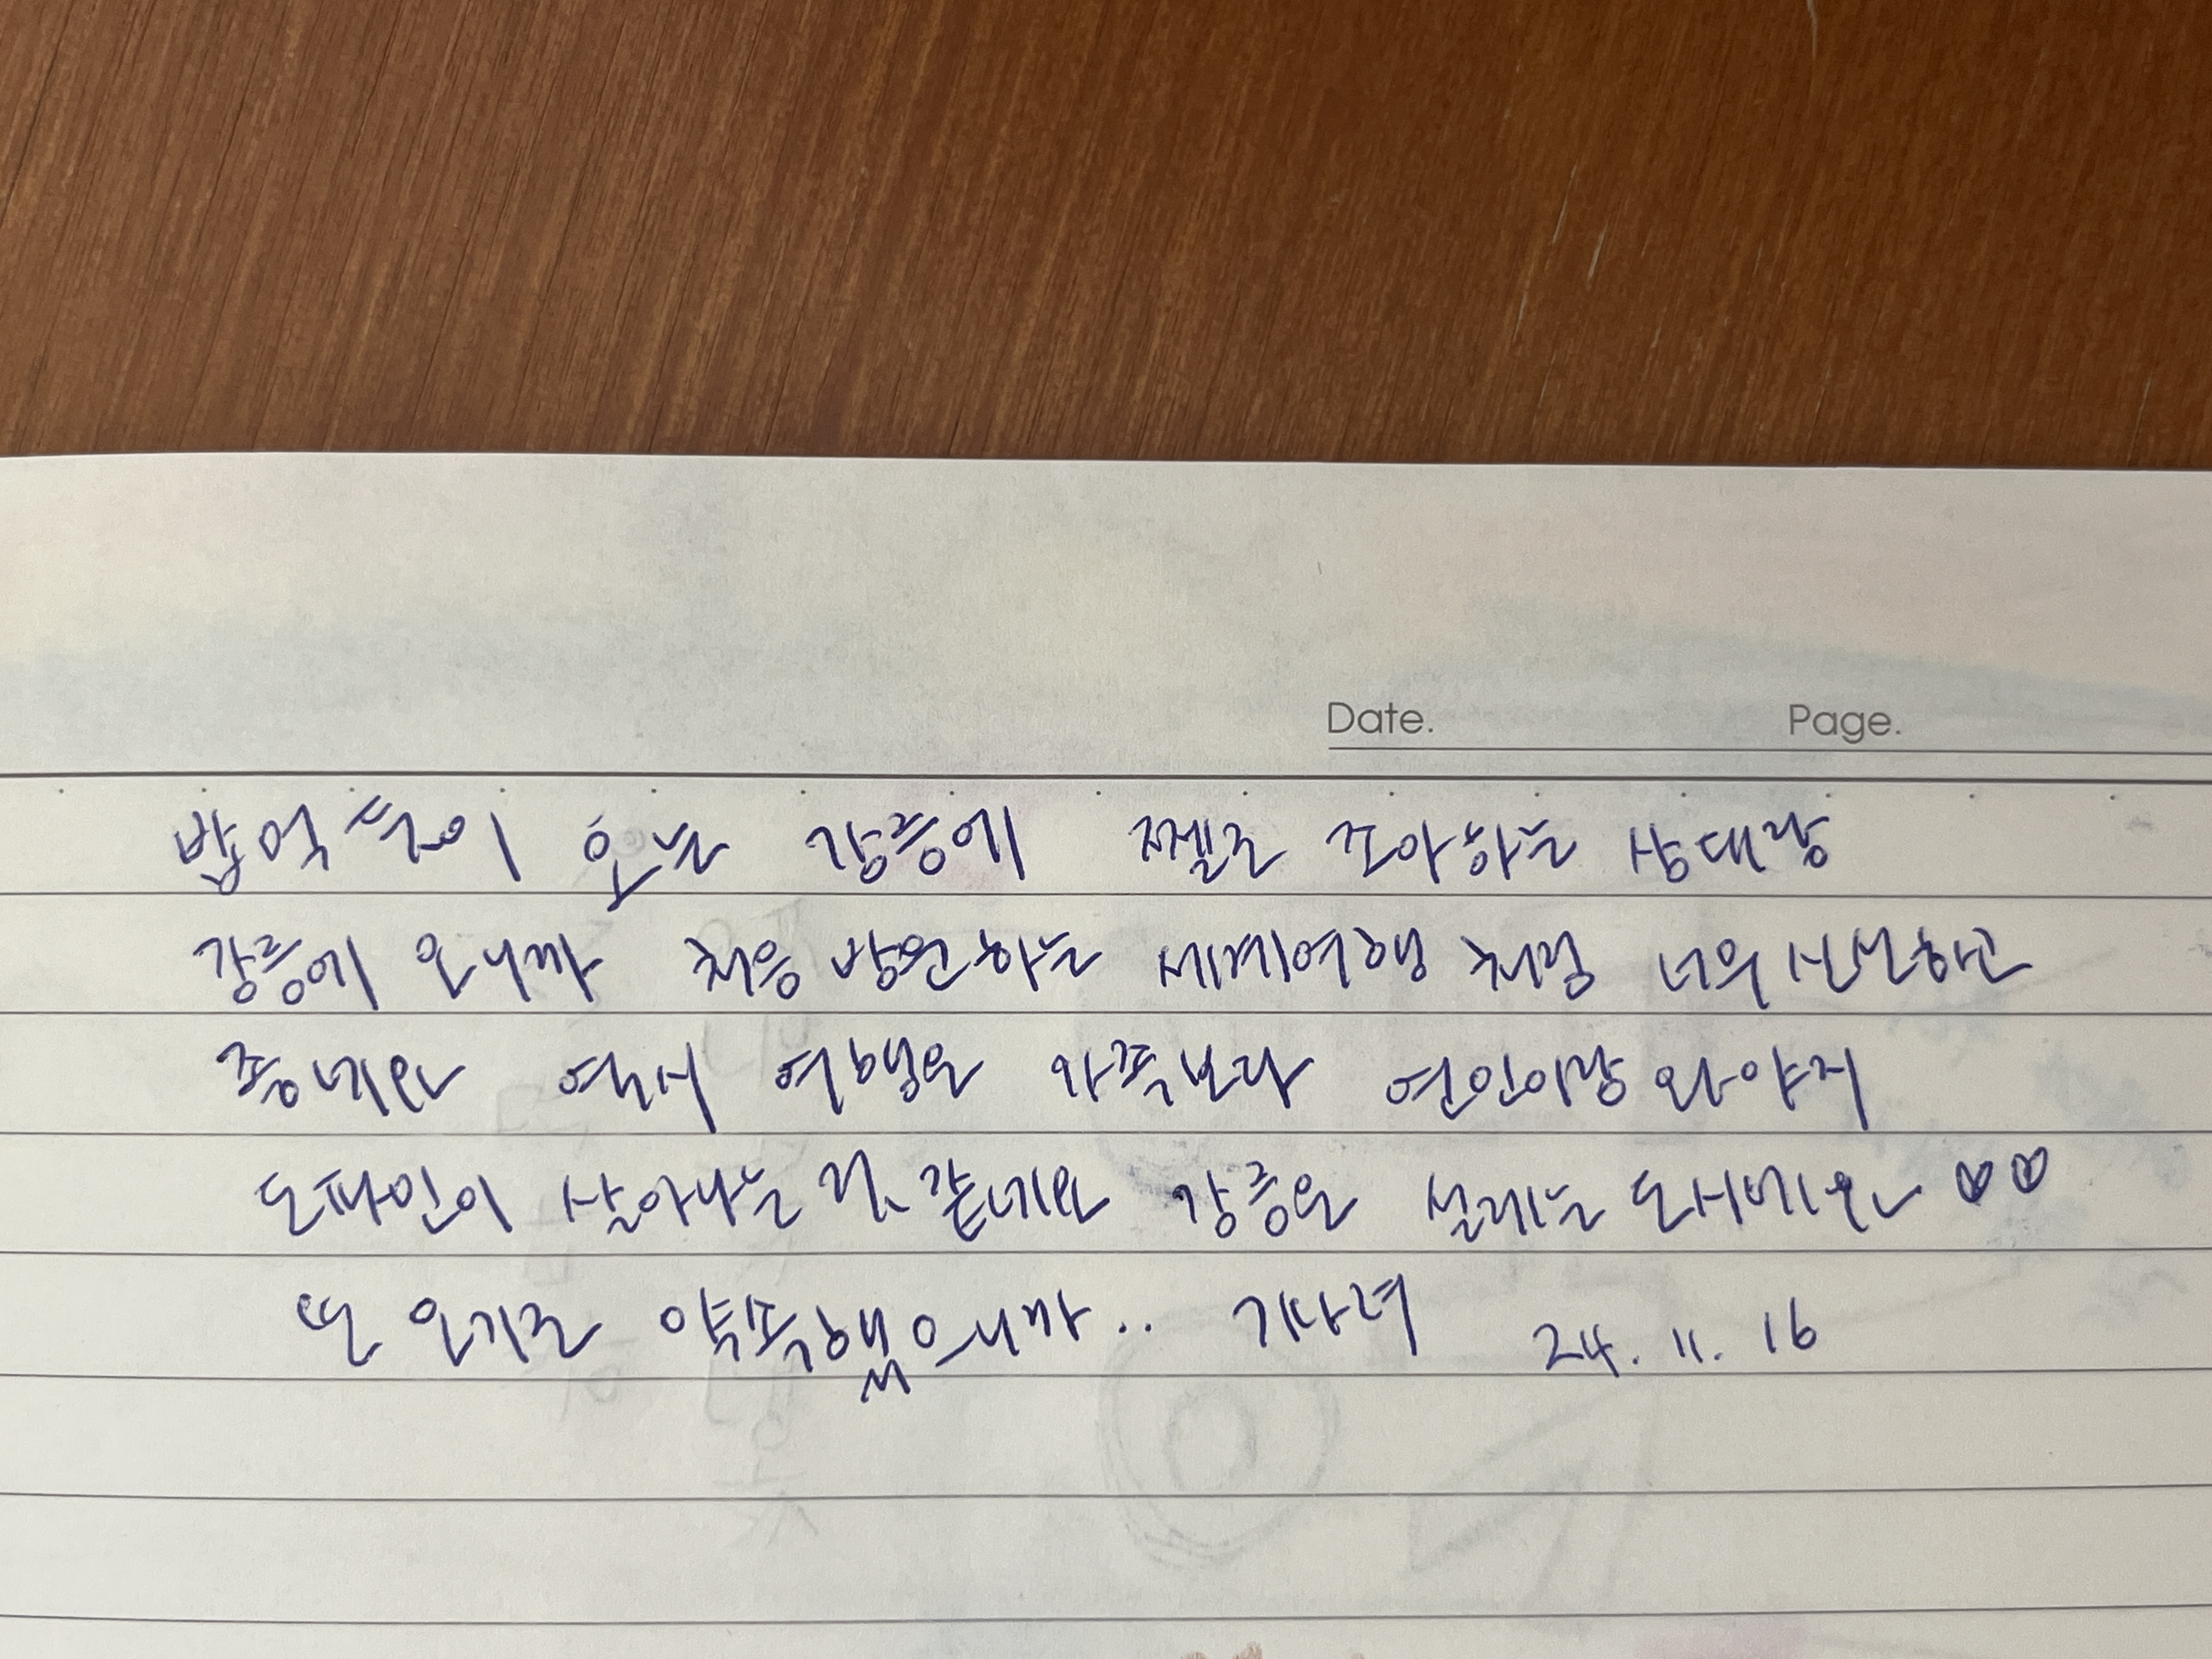 Date. Page.
밥 먹듯이 오는 강릉에 젤로 조아하는 상대랑
강릉에 오니까 처음 방문하는 세계여행 처럼 너무 신선하고
좋네요 역시 여행은 가족보다 연인이랑 와야지
도파민이 살아나는 것 같네요 강릉은 설레는 도시네요 ♡♡
또 오기로 약속했으니까.. 기다려 24. 11. 16